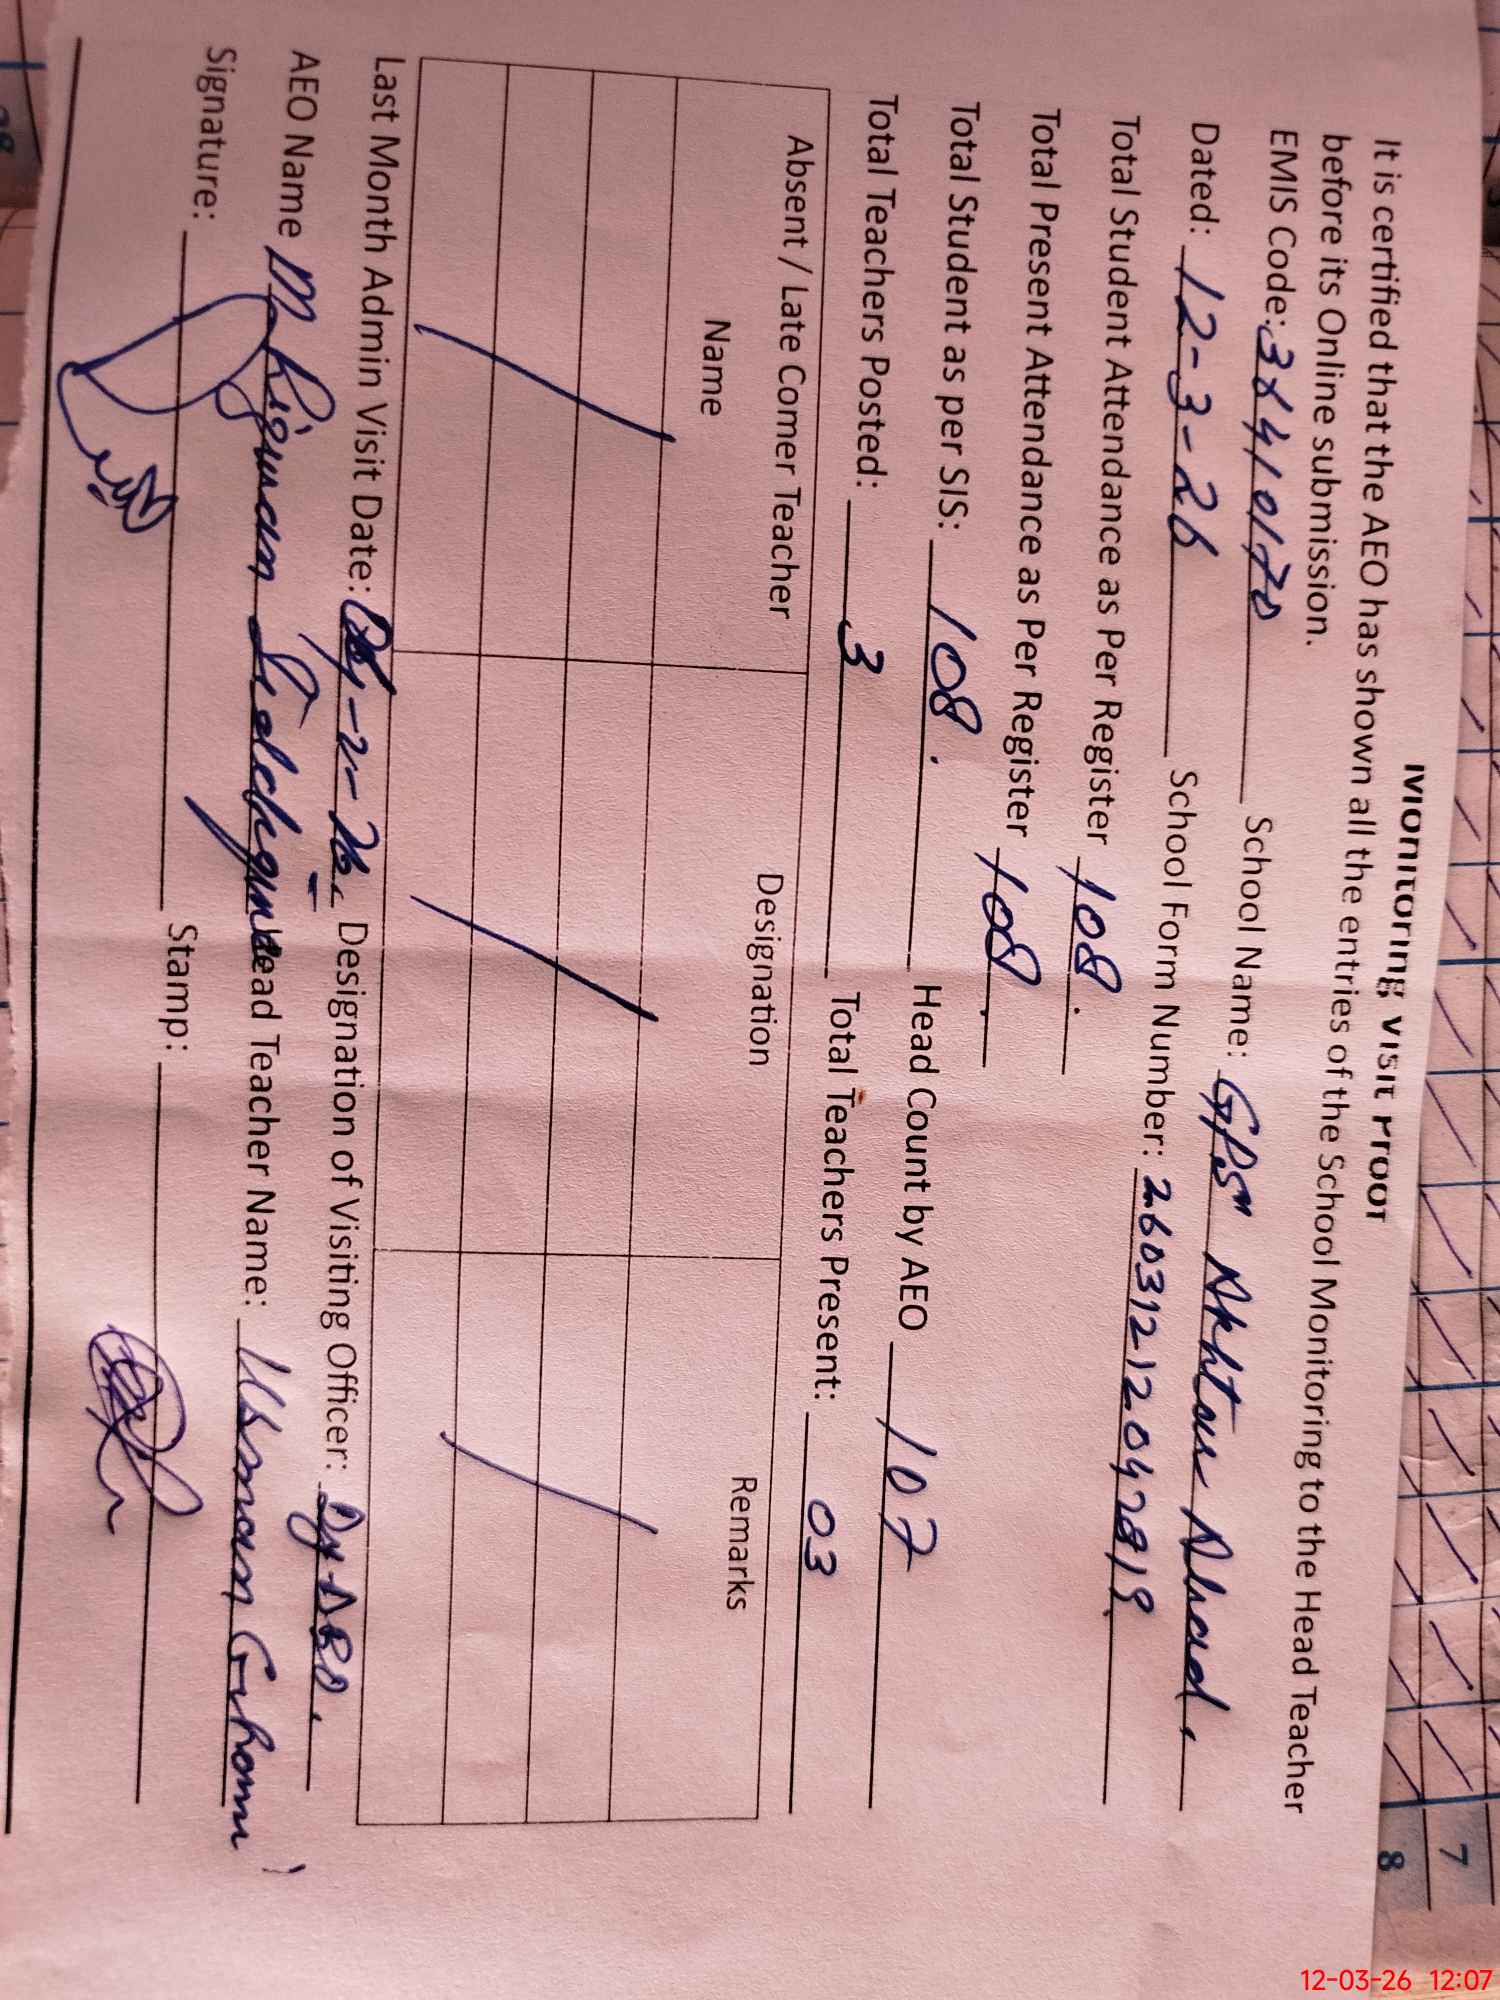 Monitoring Visit Proof
It is certified that the AEO has shown all the entries of the School Monitoring to the Head Teacher
before its Online submission.
EMIS Code: 38410170 School Name: GPS Akhtar Abad.
Dated: 12-3-26 School Form Number: 2603121204 2819
Total Student Attendance as Per Register 108.
Total Present Attendance as Per Register 108
Total Student as per SIS: 108. Head Count by AEO 107
Total Teachers Posted: 3 Total Teachers Present: 03
Absent / Late Comer Teacher Designation Remarks
Name
Last Month Admin Visit Date: -2-26. Designation of Visiting Officer: Dy DEO.
AEO Name M. Rizwan Head Teacher Name: Usman Ghani
Signature: Stamp:
7
8
12-03-26 12:07